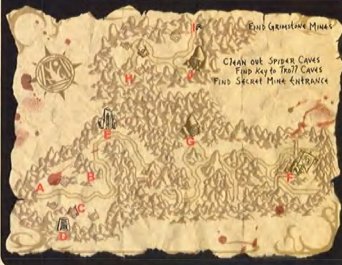 Find Grimstone Mines
Clean out Spider Caves
Find Key to Troll Caves
Find Secret Mine Entrance
I
H
J
E
G
A
B
F
C
D